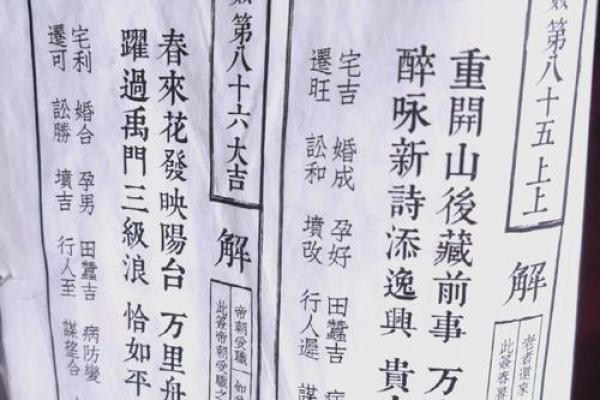 第八十五上上
解
老者還來
此簽春暮
重開山後藏前事 万
醉咏新詩添逸興 貴
宅吉 婚成 孕好 田蠶吉 病
遷旺 訟和 墳改 行人遲 謀
第八十六大吉
解
帝朝受職 如
此簽帝朝受職之
春來花發映陽台 万里舟
躍過禹門三級浪 恰如平
宅利 婚合 孕男 田蠶吉 病防變
遷可 訟勝 墳吉 行人至 謀望合